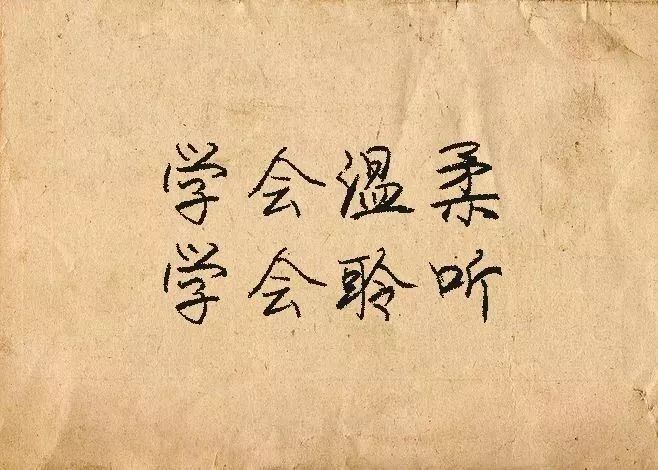 学会温柔
学会聆听